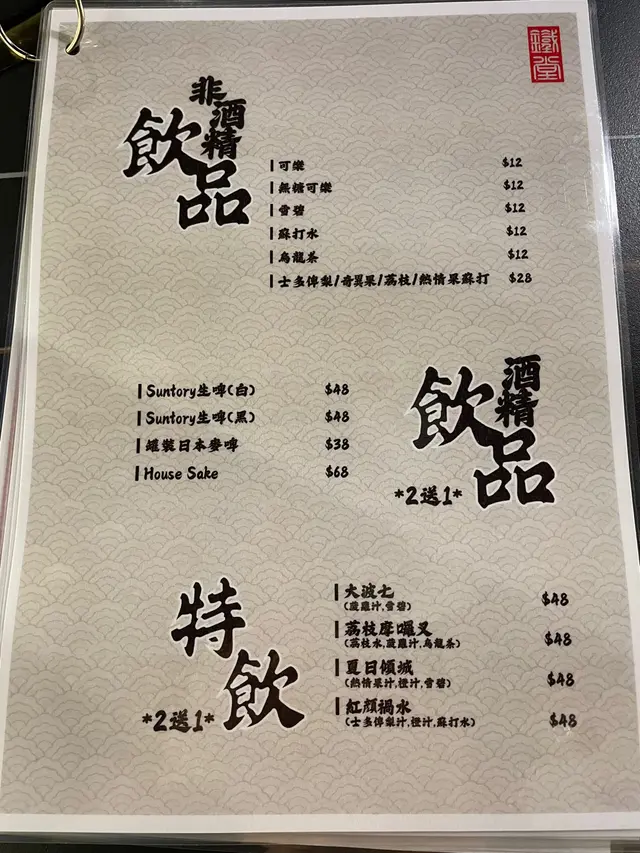 鐵堂
非酒精
飲品
可樂 $12
無糖可樂 $12
雪碧 $12
蘇打水 $12
烏龍茶 $12
士多俾梨/奇異果/荔枝/熱情果蘇打 $28
酒精
飲品
*2送1*
Suntory生啤(白) $48
Suntory生啤(黑) $48
罐裝日本麥啤 $38
House Sake $68
特飲
*2送1*
大波七 $48
(菠蘿汁,雪碧)
荔枝摩囉叉 $48
(荔枝水,菠蘿汁,烏龍茶)
夏日傾城 $48
(熱情果汁,橙汁,雪碧)
紅顏禍水 $48
(士多俾梨汁,橙汁,蘇打水)